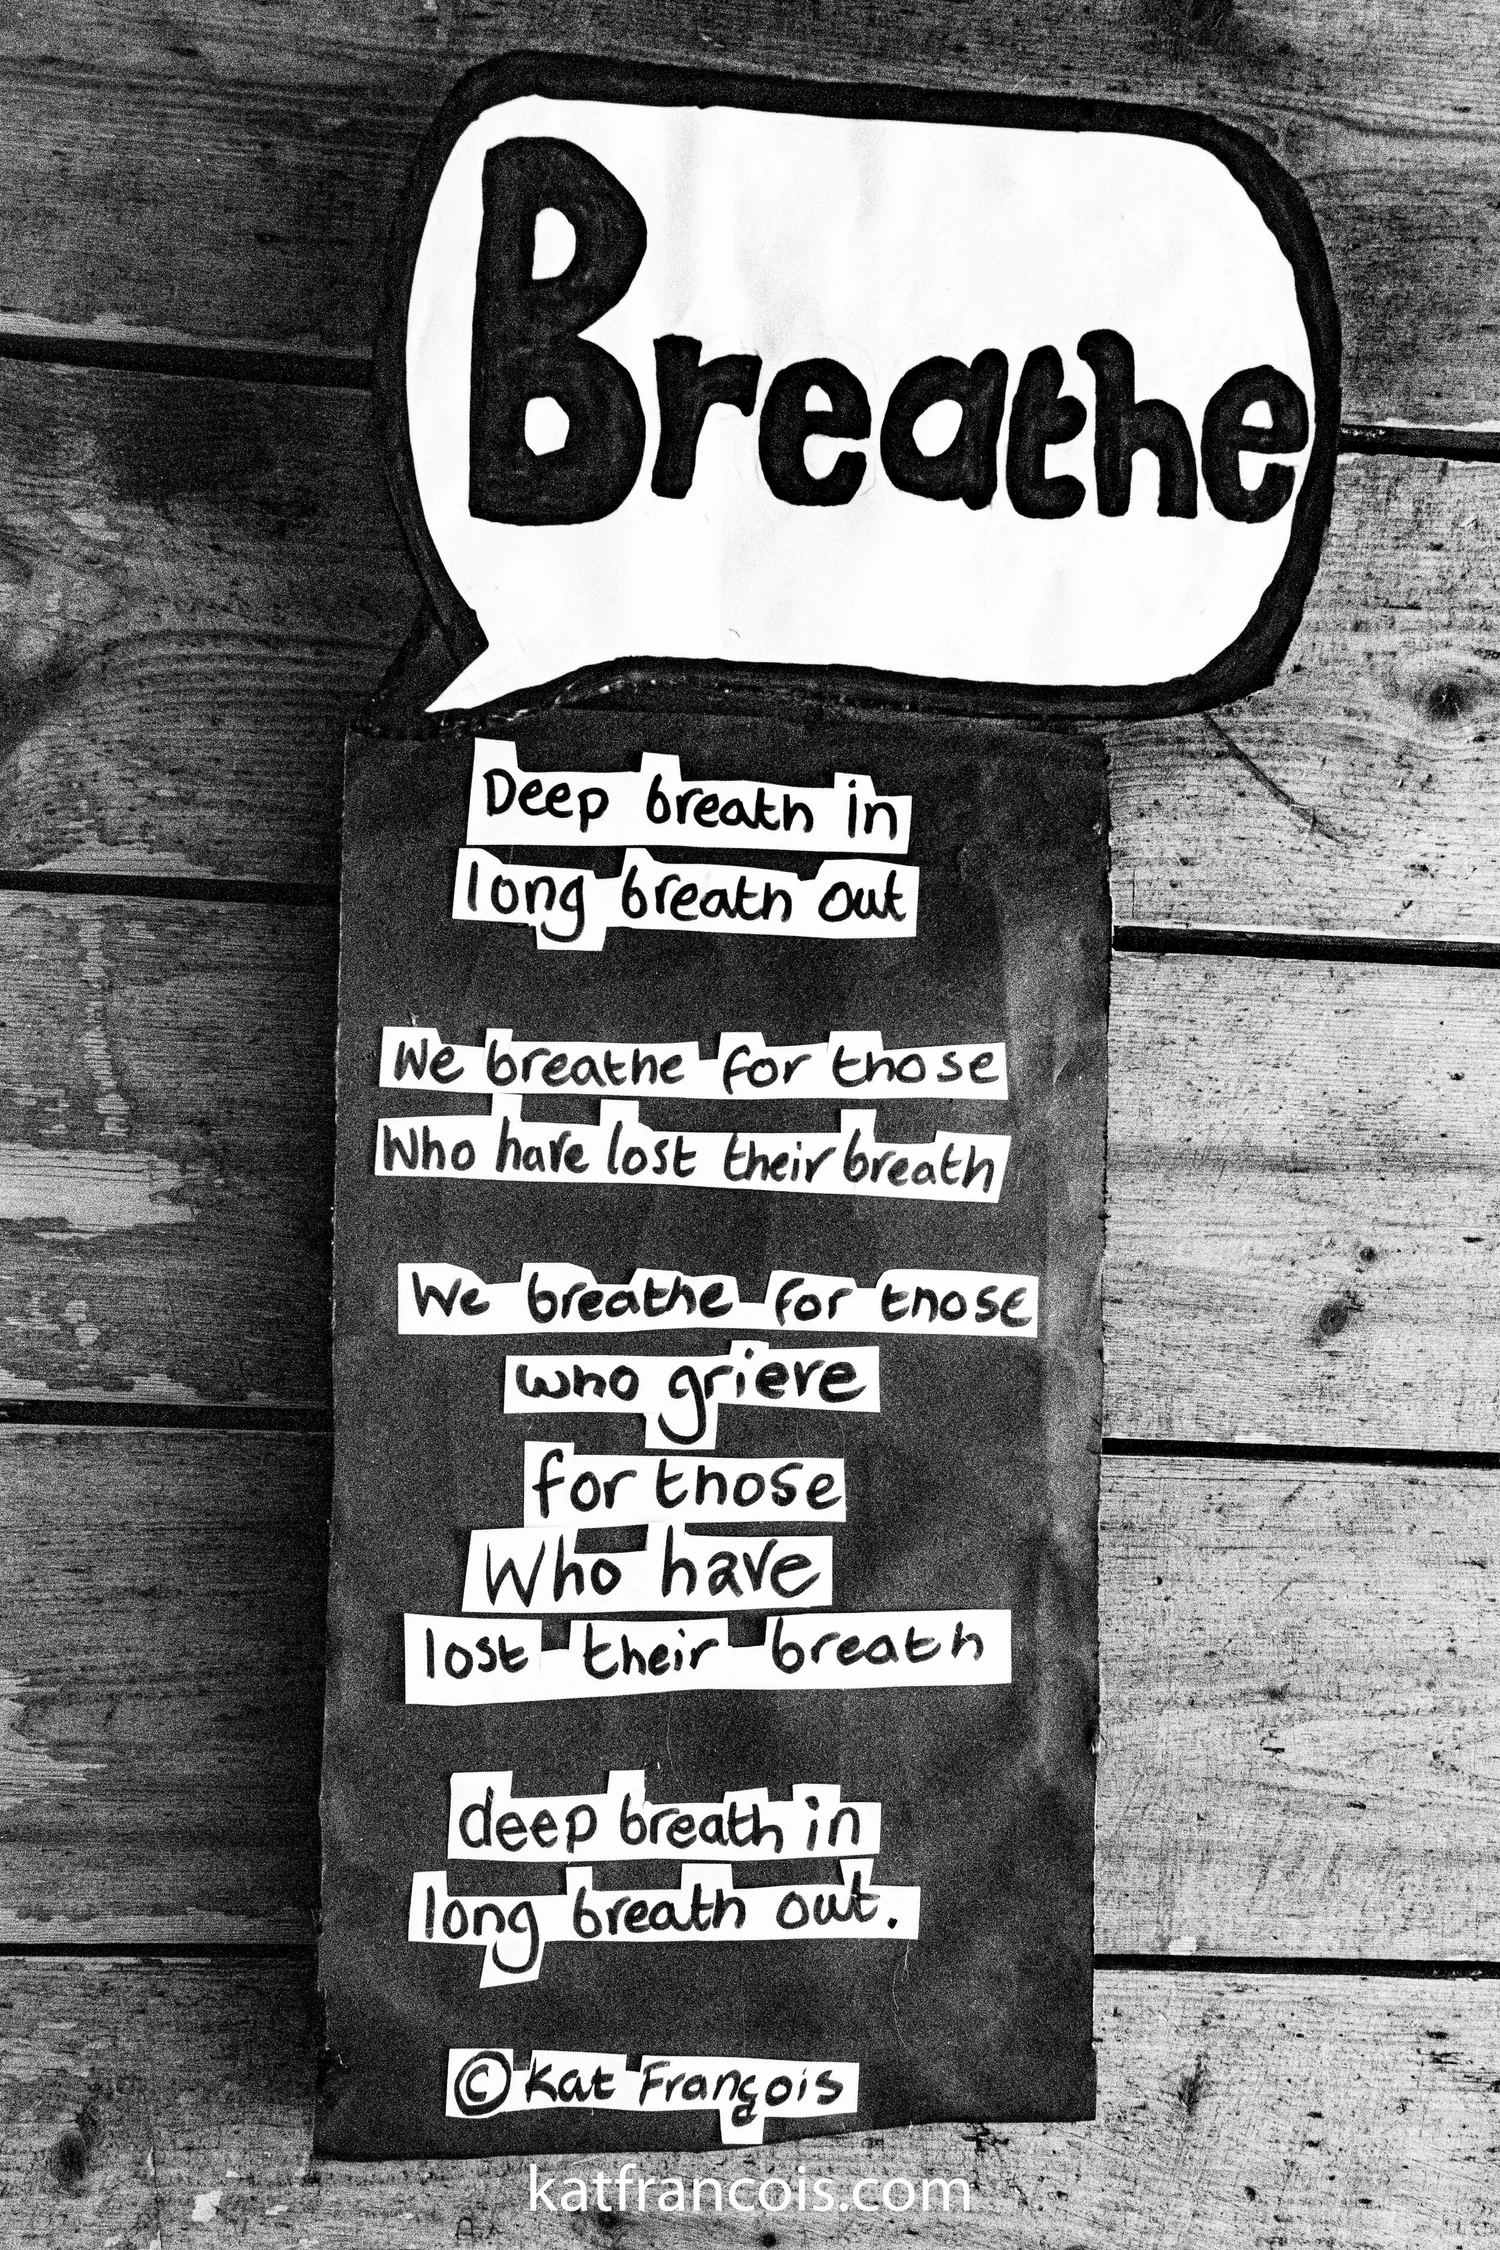 Breathe
Deep breath in
long breath out
We breathe for those
Who have lost their breath
We breathe for those
who grieve
for those
Who have
lost their breath
deep breath in
long breath out.
© Kat François
katfrancois.com